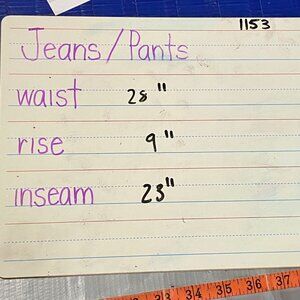 1153
Jeans/Pants
waist 28"
rise 9"
inseam 23"
31 4 35 36 37